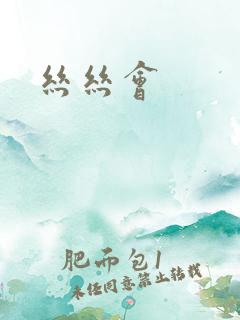 絲絲會
肥而包1
未任同意禁止轉載